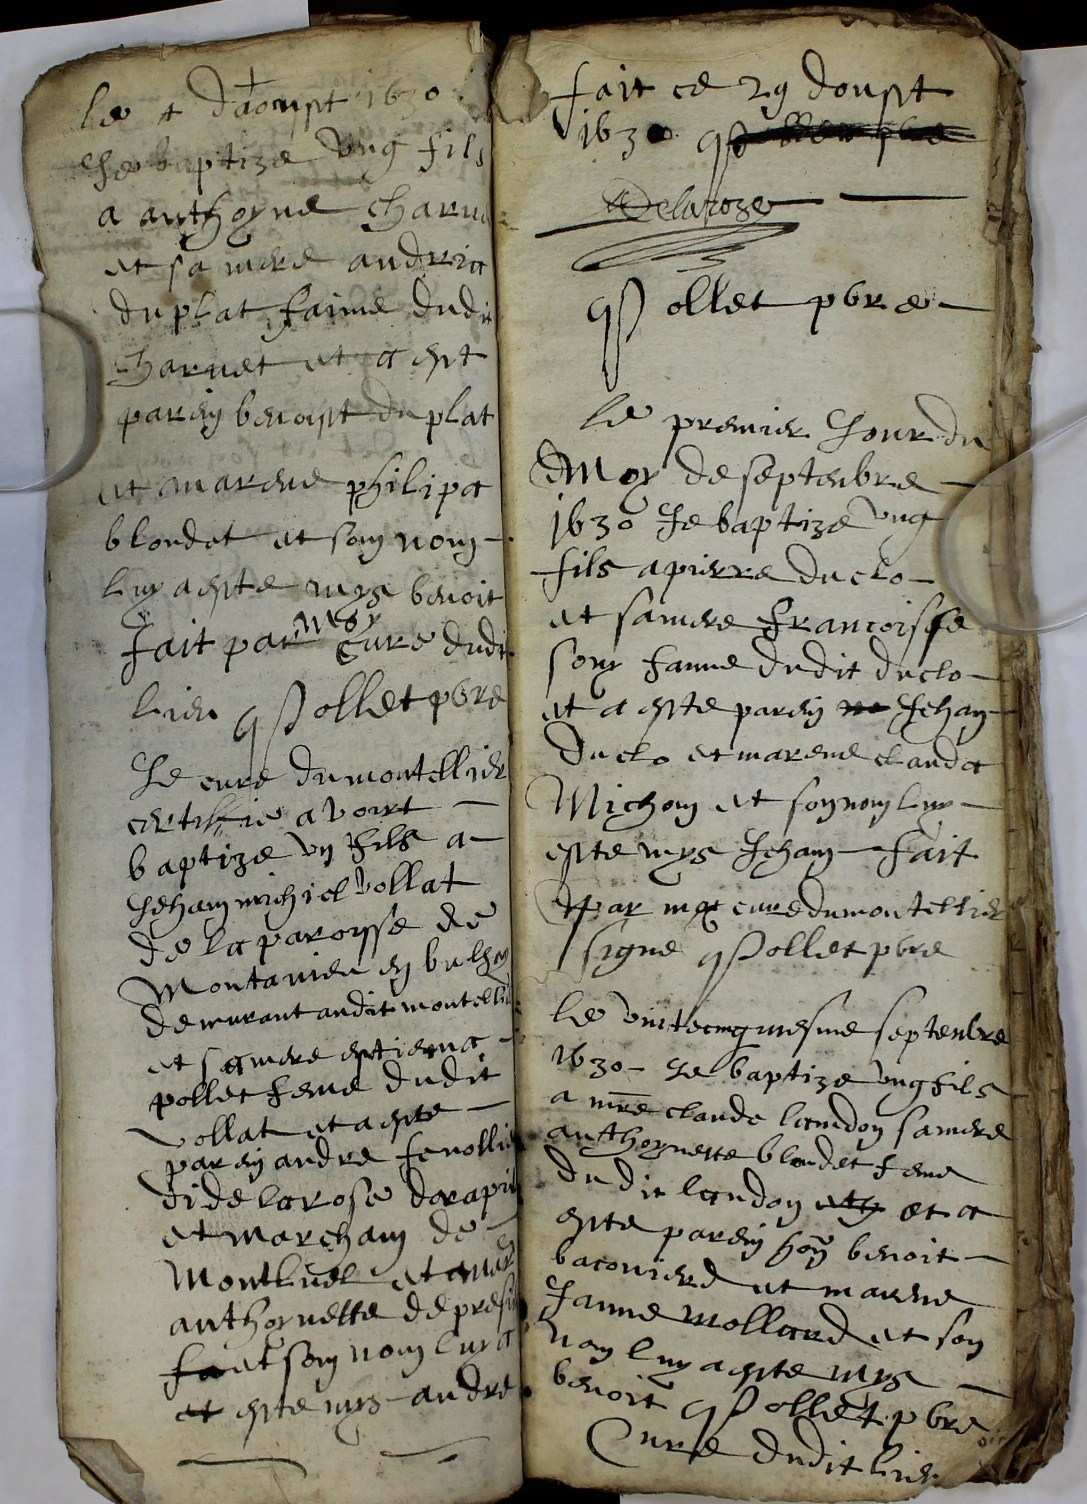 le 4 daoust 1630
Je baptize ung fils
a anthoyne charve
et sa mere andria
duplat fame dudit
charvet et a est
parin benoist duplat
et marene philipa
blondet et son nom
luy a este mys benoit
fait par moy cure dudit
lieu Pollet pbre
Je cure du montellier
certiffie avoirt
baptize un fils a
Jehan michiel vollat
de la paroysse de
Montanieu en buhey
demurant audit montellier
et sa mere estiena
pollet feme dudit
vollat et a este
parin andre fenollie
di delarose drapie
et marcham de
Montluel et mare
anthoynette de presi
fa et son nom luy a
et este mys andre
fait ce 29 doust
1630
Delaroze
Pollet pbre
Le premier Jour du
Moy de septenbre
1630 Je baptize ung
fils a pierre duclo
et sa mere francoisse
son fame dudit duclo
et a este parin Jehan
duclo et marene clauda
Michon et son nom luy
este mys Jehan fait
par moy cure du montellier
signe Pollet pbre
Le vintcinquiesme septenbre
1630 Je baptize ung fils
a mre claude landon sa mere
anthoynette blondet feme
dudit landon et a
este parin hon benoit
bacouniere et marene
Janne mollard et son
nom luy a este mys
benoit Pollet pbre
Cure dudit lieu